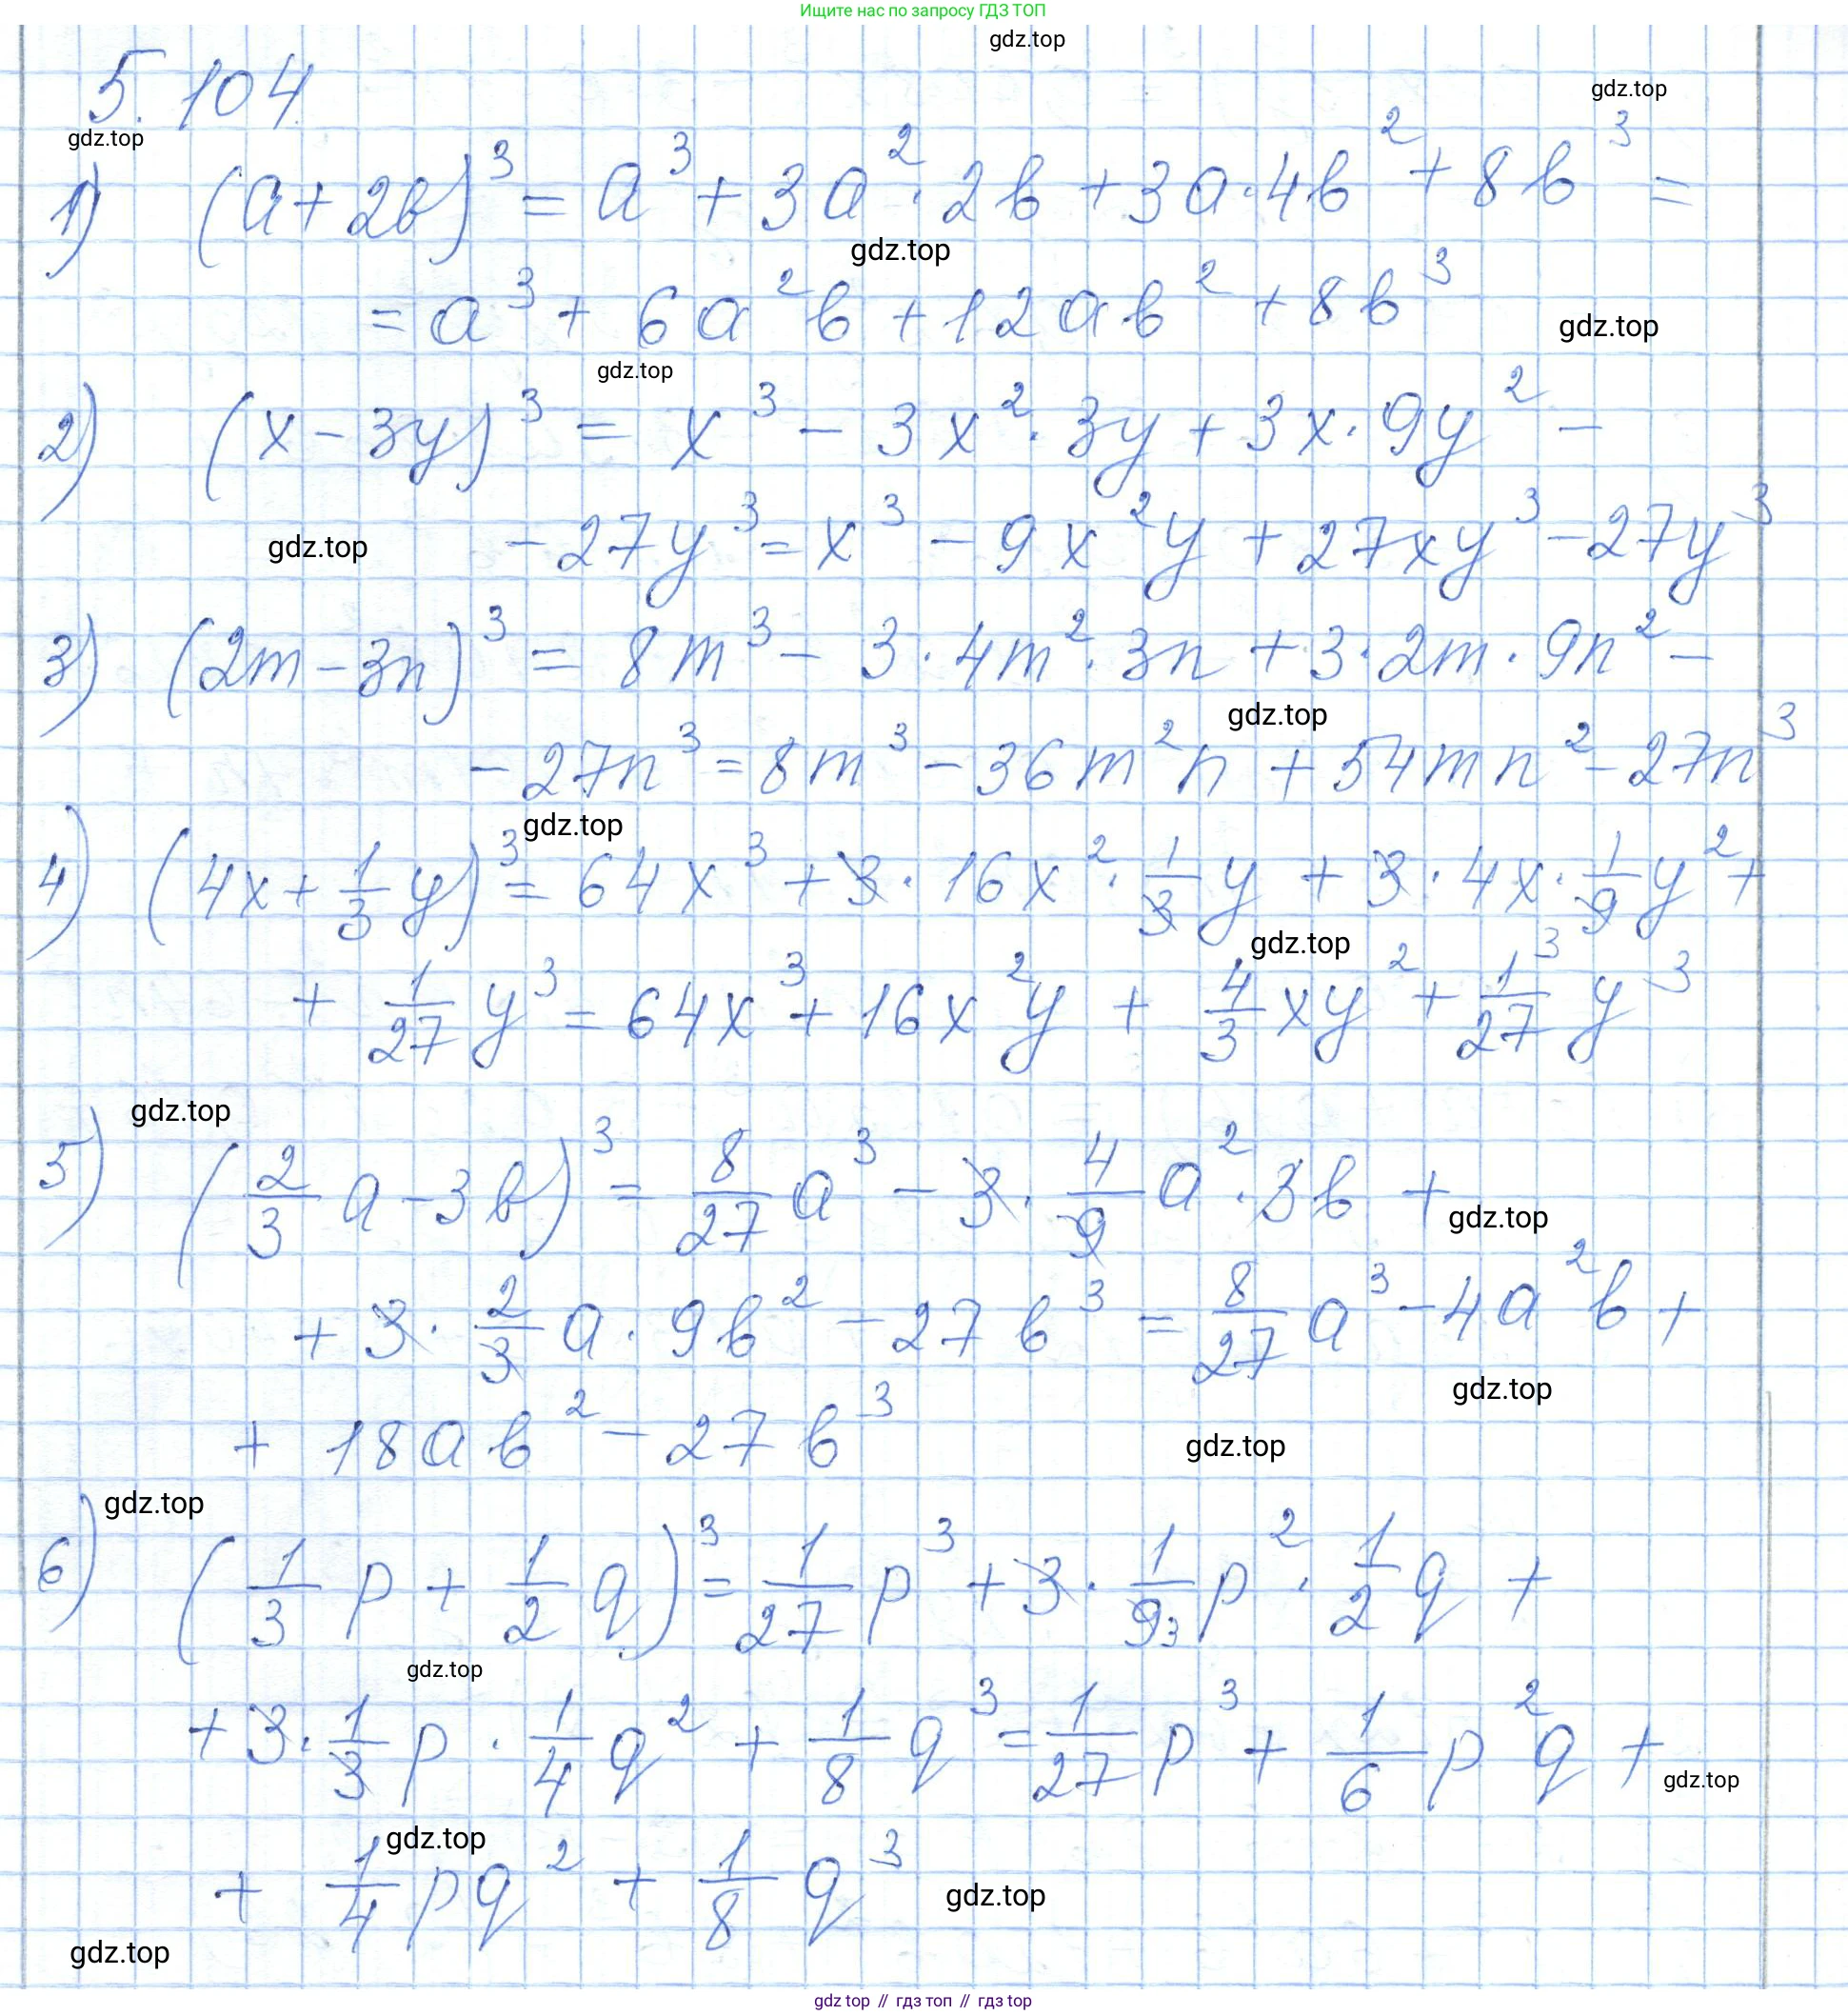 Ищите нас по запросу ГДЗ ТОП
gdz.top
5.104.
gdz.top
gdz.top
1) (a+2b)³ = a³ + 3a²·2b + 3a·4b² + 8b³ =
gdz.top
= a³ + 6a²b + 12ab² + 8b³
gdz.top
gdz.top
2) (x - 3y)³ = x³ - 3x²·3y + 3x·9y² -
gdz.top
- 27y³ = x³ - 9x²y + 27xy³ - 27y³
3) (2m - 3n)³ = 8m³ - 3·4m²·3n + 3·2m·9n² -
gdz.top
- 27n³ = 8m³ - 36m²n + 54mn² - 27n³
gdz.top
4) (4x + 1/3 y)³ = 64x³ + 3·16x²·1/3 y + 3·4x·1/9 y² +
gdz.top
+ 1/27 y³ = 64x³ + 16x²y + 4/3 xy² + 1³/27 y³
gdz.top
5) (2/3 a - 3b)³ = 8/27 a³ - 3·4/9 a²·3b +
gdz.top
+ 3·2/3 a·9b² - 27b³ = 8/27 a³ - 4a²b +
gdz.top
+ 18ab² - 27b³
gdz.top
gdz.top
6) (1/3 p + 1/2 q)³ = 1/27 p³ + 3·1/9₃ p²·1/2 q +
gdz.top
+ 3·1/3 p·1/4 q² + 1/8 q³ = 1/27 p³ + 1/6 p²q +
gdz.top
gdz.top
+ 1/4 pq² + 1/8 q³
gdz.top
gdz.top
gdz top // гдз топ // гдз top